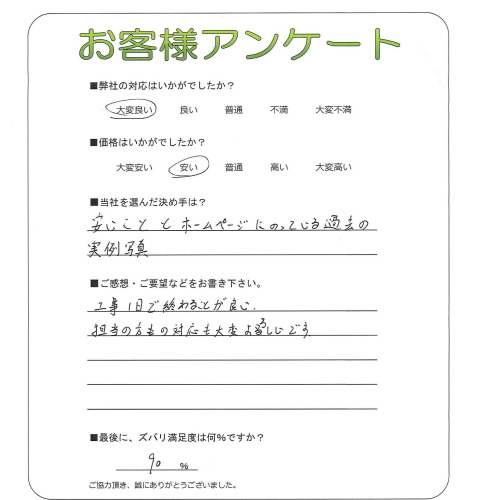 お客様アンケート
■弊社の対応はいかがでしたか？
大変良い 良い 普通 不満 大変不満
■価格はいかがでしたか？
大変安い 安い 普通 高い 大変高い
■当社を選んだ決め手は？
安いこと と ホームページにのっている過去の
実例写真
■ご感想・ご要望などをお書き下さい。
工事1日で終わることが良い.
担当の方もの対応も大変よろしいです
■最後に、ズバリ満足度は何％ですか？
90 ％
ご協力頂き、誠にありがとうございました。